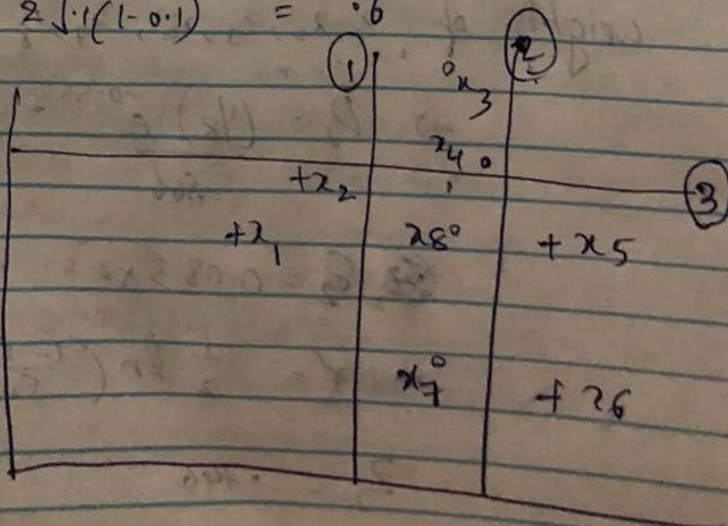 2√.1(1-0.1) = .6
① ②
°x3
x4°
+x2 ③
+x1 x8° +x5
x7° +x6